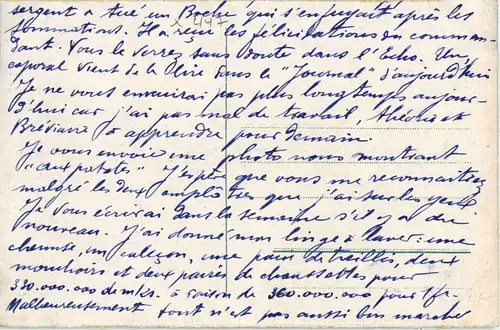 sergent a tué un Boche qui s'enfuyait après les
sommations. Il a reçu les félicitations du comman-
dant. Vous le verrez sans doute dans l'Echo. Un
caporal vient de le lire dans le "Journal" d'aujourd'hui
Je ne vous ennuirai pas plus longtemps aujour-
d'hui car j'ai pas mal de travail, théorie et
Bréviaire à apprendre pour demain.
Je vous envoie une photo nous montrant
"aux patates" J'espère que vous me reconnaîtrez
malgré les deux emplâtres que j'ai sur les yeux
Je vous écrirai dans la semaine s'il y a du
nouveau. J'ai donné mon linge à laver: une
chemise, un caleçon, une paire de treillis, deux
mouchoirs et deux paires de chaussettes pour
330.000.000 de mks. à raison de 360.000.000 pour 1 fr.
Malheureusement tout n'est pas aussi bon marché